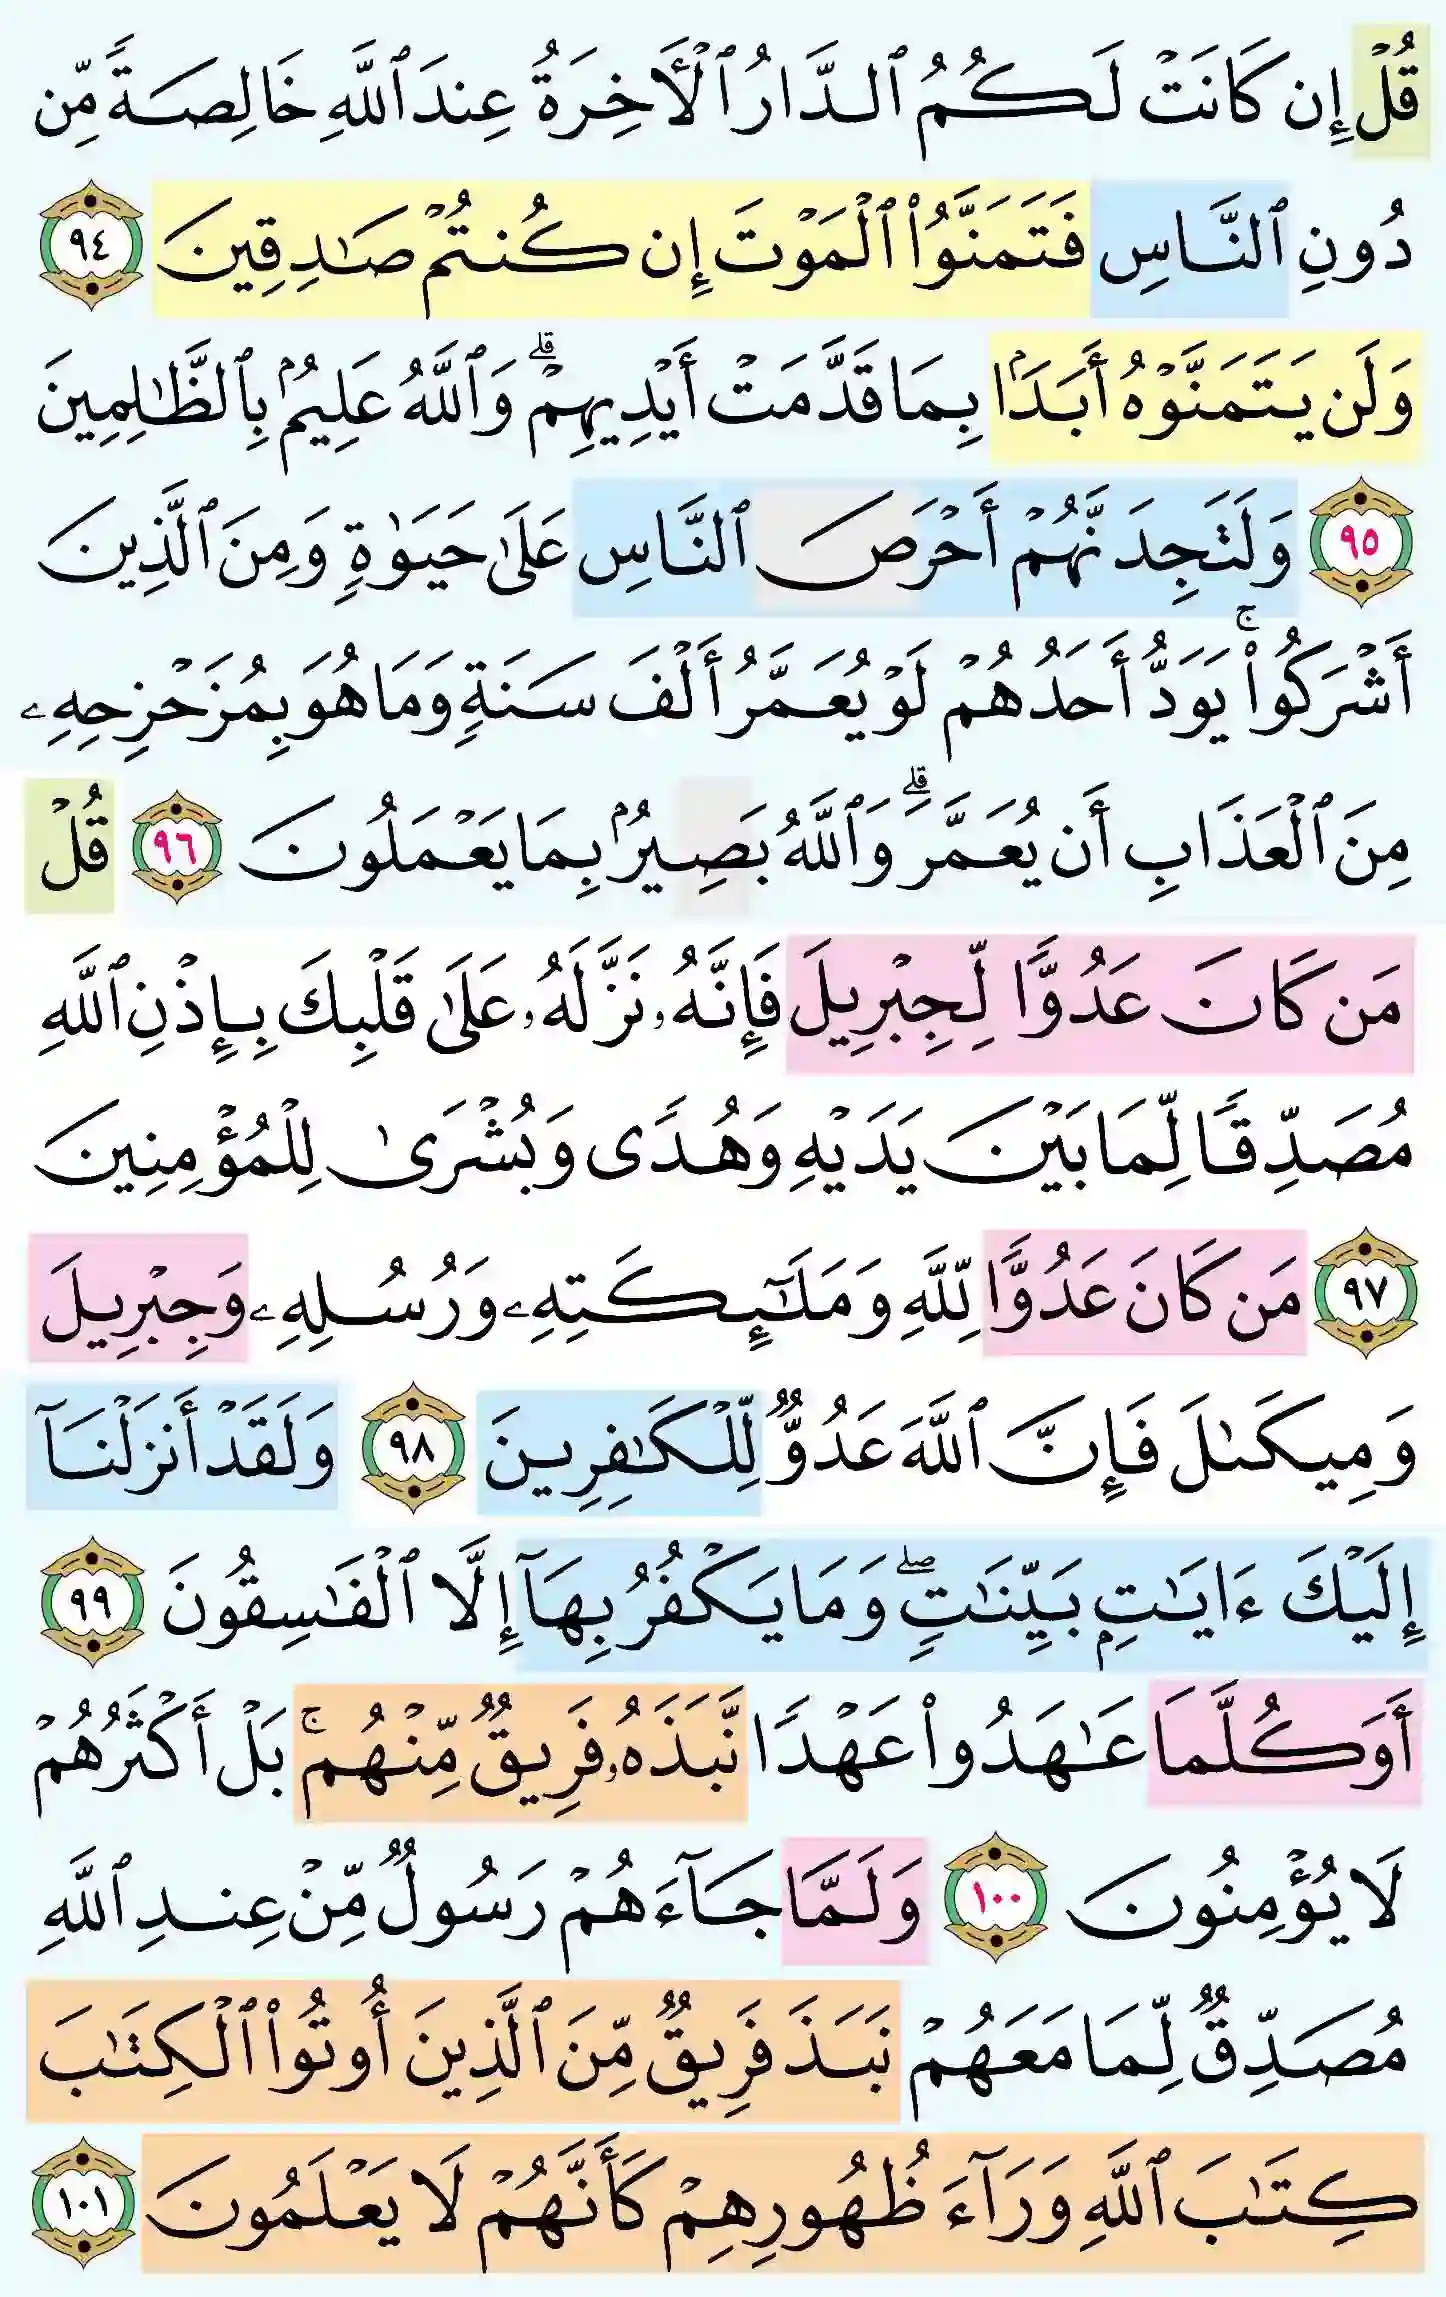 قُلۡ إِن كَانَتۡ لَكُمُ ٱلدَّارُ ٱلۡأَخِرَةُ عِندَ ٱللَّهِ خَالِصَةً مِّن
دُونِ ٱلنَّاسِ فَتَمَنَّوُاْ ٱلۡمَوۡتَ إِن كُنتُمۡ صَٰدِقِينَ ٩٤
وَلَن يَتَمَنَّوۡهُ أَبَدَۢا بِمَا قَدَّمَتۡ أَيۡدِيهِمۡۗ وَٱللَّهُ عَلِيمُۢ بِٱلظَّٰلِمِينَ
٩٥ وَلَتَجِدَنَّهُمۡ أَحۡرَصَ ٱلنَّاسِ عَلَىٰ حَيَوٰةٖ وَمِنَ ٱلَّذِينَ
أَشۡرَكُواْۚ يَوَدُّ أَحَدُهُمۡ لَوۡ يُعَمَّرُ أَلۡفَ سَنَةٖ وَمَا هُوَ بِمُزَحۡزِحِهِۦ
مِنَ ٱلۡعَذَابِ أَن يُعَمَّرَۗ وَٱللَّهُ بَصِيرُۢ بِمَا يَعۡمَلُونَ ٩٦ قُلۡ
مَن كَانَ عَدُوّٗا لِّجِبۡرِيلَ فَإِنَّهُۥ نَزَّلَهُۥ عَلَىٰ قَلۡبِكَ بِإِذۡنِ ٱللَّهِ
مُصَدِّقٗا لِّمَا بَيۡنَ يَدَيۡهِ وَهُدٗى وَبُشۡرَىٰ لِلۡمُؤۡمِنِينَ
٩٧ مَن كَانَ عَدُوّٗا لِّلَّهِ وَمَلَٰٓئِكَتِهِۦ وَرُسُلِهِۦ وَجِبۡرِيلَ
وَمِيكَىٰلَ فَإِنَّ ٱللَّهَ عَدُوّٞ لِّلۡكَٰفِرِينَ ٩٨ وَلَقَدۡ أَنزَلۡنَآ
إِلَيۡكَ ءَايَٰتِۭ بَيِّنَٰتٖۖ وَمَا يَكۡفُرُ بِهَآ إِلَّا ٱلۡفَٰسِقُونَ ٩٩
أَوَكُلَّمَا عَٰهَدُواْ عَهۡدٗا نَّبَذَهُۥ فَرِيقٞ مِّنۡهُمۚ بَلۡ أَكۡثَرُهُمۡ
لَا يُؤۡمِنُونَ ١٠٠ وَلَمَّا جَآءَهُمۡ رَسُولٞ مِّنۡ عِندِ ٱللَّهِ
مُصَدِّقٞ لِّمَا مَعَهُمۡ نَبَذَ فَرِيقٞ مِّنَ ٱلَّذِينَ أُوتُواْ ٱلۡكِتَٰبَ
كِتَٰبَ ٱللَّهِ وَرَآءَ ظُهُورِهِمۡ كَأَنَّهُمۡ لَا يَعۡلَمُونَ ١٠١